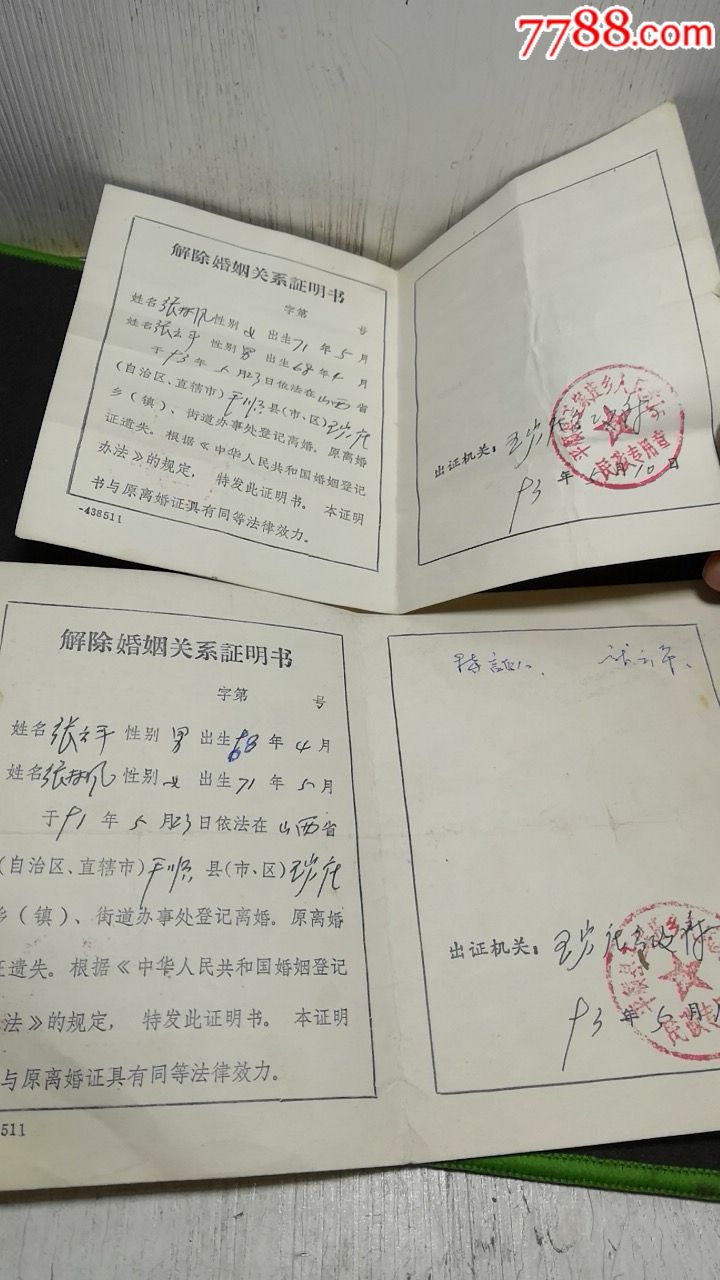 7788.com
解除婚姻关系証明书
字第 号
姓名张林凤性别女 出生71年5月
姓名张云平 性别男 出生68年4月
于93年5月23日依法在山西省
(自治区、直辖市)平顺县(市、区)
乡(镇)、街道办事处登记离婚。原离婚
证遗失。根据《中华人民共和国婚姻登记
办法》的规定, 特发此证明书。 本证明
书与原离婚证具有同等法律效力。
-438511
出证机关:
民政专用章
93年5月10日
解除婚姻关系証明书
字第 号
姓名张云平 性别 男 出生68年4月
姓名张林凤 性别 女 出生71年5月
于91年5月23日依法在山西省
(自治区、直辖市)平顺县(市、区)
乡(镇)、街道办事处登记离婚。原离婚
证遗失。根据《中华人民共和国婚姻登记
法》的规定, 特发此证明书。 本证明
与原离婚证具有同等法律效力。
511
持証人、 张云平、
出证机关:
93年5月